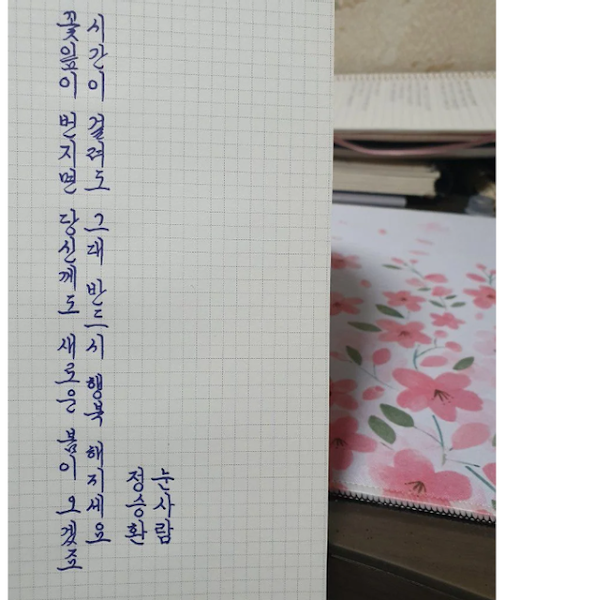 꽃잎이 번지면 당신께도 새로운 봄이 오겠죠
시간이 걸려도 그대 반드시 행복 해지세요
정승환
눈사람